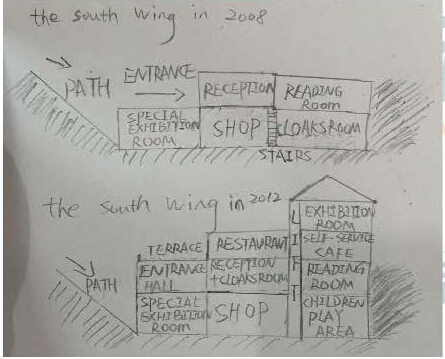 the south wing in 2008
PATH
ENTRANCE
RECEPTION
READING
ROOM
SPECIAL
EXHIBITION
ROOM
SHOP
CLOAKSROOM
STAIRS
the south wing in 2012
PATH
TERRACE
RESTAURANT
ENTRANCE
HALL
RECEPTION
+CLOAKSROOM
SPECIAL
EXHIBITION
ROOM
SHOP
LIFT
EXHIBITION
ROOM
SELF-SERVICE
CAFE
READING
ROOM
CHILDREN
PLAY
AREA